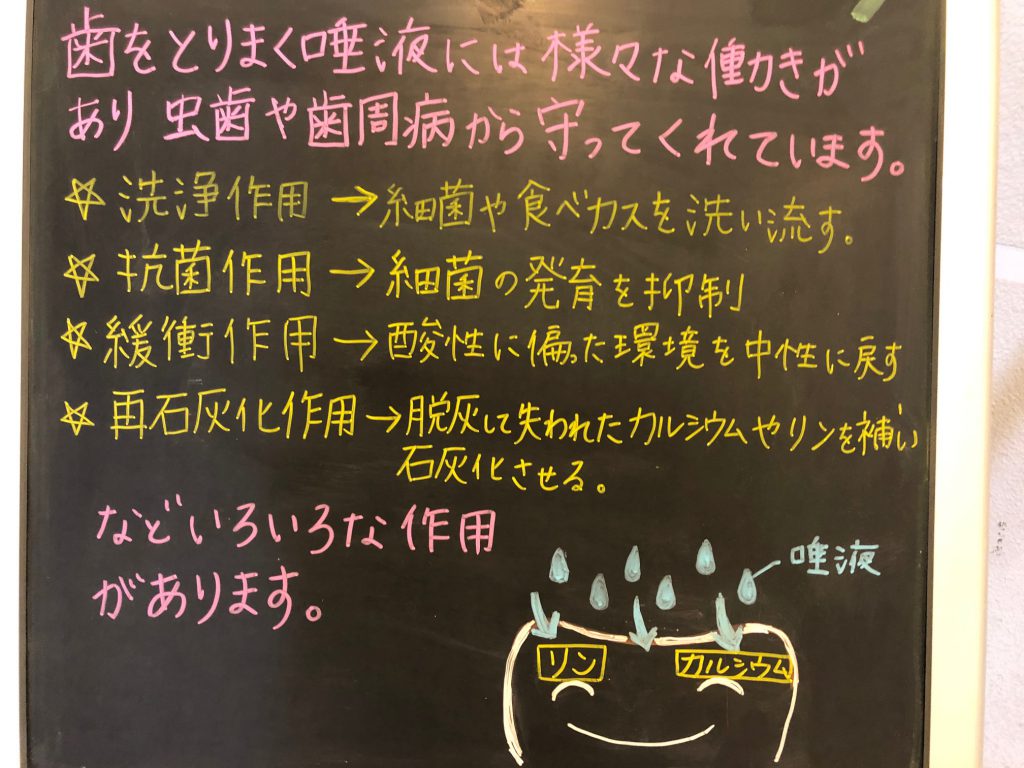 歯をとりまく唾液には様々な働きが
あり 虫歯や歯周病から守ってくれています。
☆ 洗浄作用 → 細菌や食べカスを洗い流す。
☆ 抗菌作用 → 細菌の発育を抑制
☆ 緩衝作用 → 酸性に偏った環境を中性に戻す
☆ 再石灰化作用 → 脱灰して失われたカルシウムやリンを補い
石灰化させる。
などいろいろな作用
があります。
唾液
リン
カルシウム